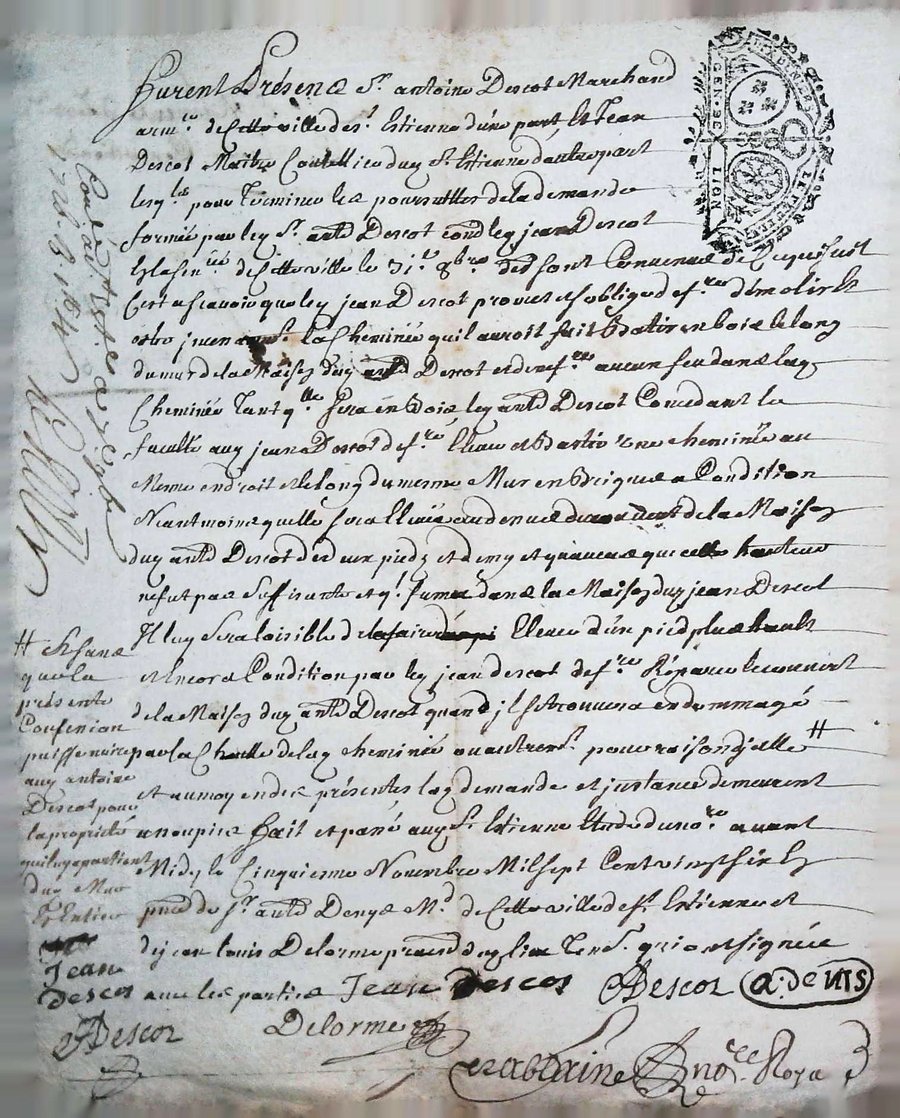 furent Présens Sr antoine Descot Marchand
arm.er de Cette ville de St Estienne d'une part, Et Jean
Descot Maitre Coutellier dud St Estienne d'autre part
lesq.ls pour Terminer les poursuittes de la demande
formée par led Sr antd Descot cond led jean Descot
de Cette ville le 31e 8bre der sont Convenus de Ce qui suit
C'est a scavoir que led jean Descot promet et s'oblige de fre démolir et
la Cheminée quil auroit fait Batir en bois le long
du mur de la Maison dud antd Descot et de ne fre aucun feu dans lad
Cheminée Tant q.lle sera en Bois led antd Descot Concedant la
faculté aud jean Descot de fre Elever et Bastir Une cheminée au
Mesme endroit et le long du mesme Mur en Bricques a Condition
Neantmoins quelle sera Ellevée au dessus du couvert de la Maison
dud antd Descot de six pieds et demy et quau cas que cette hauteur
ne fut pas Suffisante et q.l fuma dans la Maison dud jean Descot
Il luy Sera loisible de la faire Elever d'un pied plus haut
et Encore a Condition par led jean descot de fre Réparer le couvert
de la Maison dud antd Descot quand jl se trouvera endommagé
par la Chutte de lad Cheminée ou autremt pour raison d'jcelle #
et au moyen des présentes lad demande et jnstance demeurent
assoupies fait et passé aud St Estienne Etude du nore avant
Midy le Cinquieme Novembre Mil sept Cent vingt six En
pnce de Sr antd Denys Md de Cette ville de St Estienne et
de jean louis Delorme pratn dud lieu Tes. qui ont signés
avec les parties Jean descos ADescoz a. denis
ADescoz Delorme
nore Royal
# Et sans
que la
présente
Convention
puisse nuire
aud antoine
Descot pour
la propriété
qui luy apartient
dud Mur
En Entier
Jean
descos
Conlé a St Estienne
1726